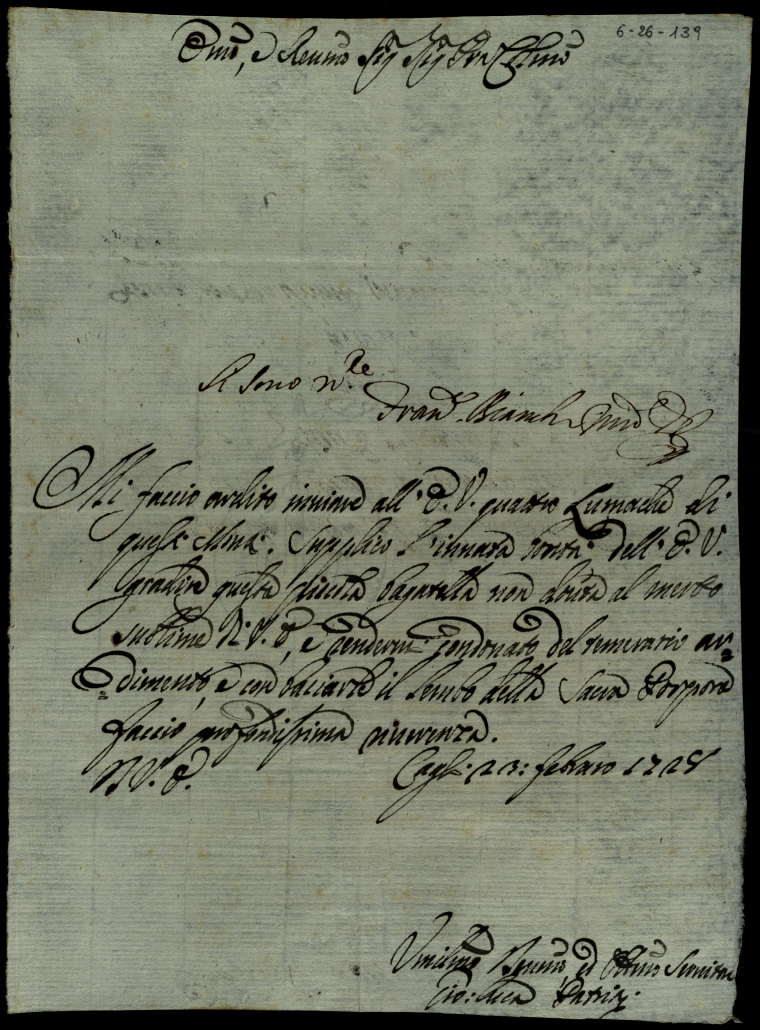 6-26-139
Emõ, e Reumõ Sig Sig Prn
Fran.
Mi faccio ardito inviare all' E. V. quattro Lumache di
quest' . Supplico l'innata bontà dell' E. V.
gradire questa piccola bagatella non dovuta al merto
sublime di V. E, e condonato del temerario ar=
=dimento, e con bacciarle il lembo della Sacra Porpora
faccio profondissima riverenza.
D V. E.
Cagl. 23: febraro 1728
Umilmõ ed Servitore
Gio: Luca Patrizj